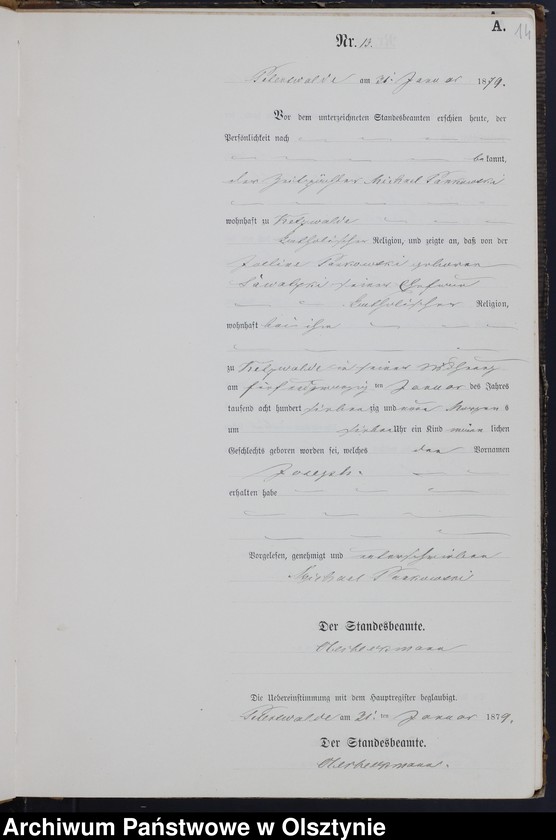 A. 14
Nr. 13.
am 31. Januar 1879.
Vor dem unterzeichneten Standesbeamten erschien heute, der
Persönlichkeit nach
bekannt,
der Michael
wohnhaft zu
katholischer Religion, und zeigte an, daß von der
geboren
seiner Ehefrau
katholischer Religion,
wohnhaft bei ihm
zu in seiner Wohnung
am fünfundzwanzig ten Januar des Jahres
tausend acht hundert siebenzig und neun Morgens
um sieben Uhr ein Kind männlichen
Geschlechts geboren worden sei, welches den Vornamen
Joseph
erhalten habe
Vorgelesen, genehmigt und unterschrieben
Michael
Der Standesbeamte.
Die Uebereinstimmung mit dem Hauptregister beglaubigt.
am 31. ten Januar 1879.
Der Standesbeamte.
Archiwum Państwowe w Olsztynie